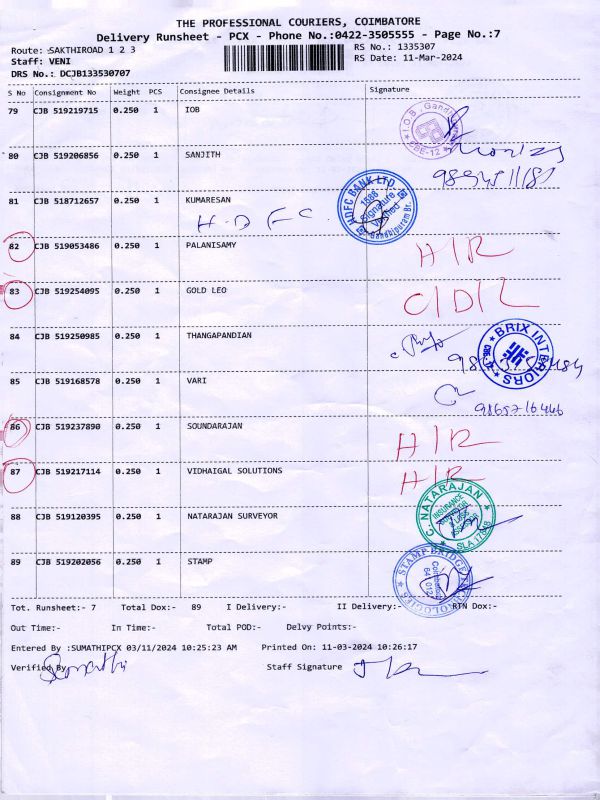 THE PROFESSIONAL COURIERS, COIMBATORE
Delivery Runsheet - PCX - Phone No.:0422-3505555 - Page No.:7
Route: SAKTHIROAD 1 2 3 RS No.: 1335307
Staff: VENI RS Date: 11-Mar-2024
DRS No.: DCJB133530707
S No Consignment No Weight PCS Consignee Details Signature
79 CJB 519219715 0.250 1 IOB
I.O.B. CBE-12
80 CJB 519206856 0.250 1 SANJITH
81 CJB 518712657 0.250 1 KUMARESAN
H.D.F.C.
HDFC BANK LTD 1588 Signature Verified Gandhipuram Br.
82 CJB 519053486 0.250 1 PALANISAMY H/R
83 CJB 519254095 0.250 1 GOLD LEO C/D/R
84 CJB 519250985 0.250 1 THANGAPANDIAN
BRIX INTERIORS
85 CJB 519168578 0.250 1 VARI
86 CJB 519237890 0.250 1 SOUNDARAJAN H/R
87 CJB 519217114 0.250 1 VIDHAIGAL SOLUTIONS H/R
88 CJB 519120395 0.250 1 NATARAJAN SURVEYOR
C. NATARAJAN INSURANCE
89 CJB 519202056 0.250 1 STAMP
Tot. Runsheet:- 7 Total Dox:- 89 I Delivery:- II Delivery:- RTN Dox:-
Out Time:- In Time:- Total POD:- Delvy Points:-
Entered By :SUMATHIPCX 03/11/2024 10:25:23 AM Printed On: 11-03-2024 10:26:17
Verified By Staff Signature